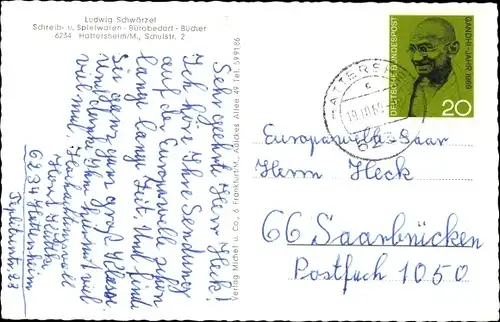 Ludwig Schwärzel
Schreib- u. Spielwaren - Bürobedarf - Bücher
6234 Hattersheim/M., Schulstr. 2
Sehr geehrte Herr Heck!
Ich höre Ihre Sendung
auf der Europawelle schon
lange lange Zeit. Und finde
Sie ganz ganz groß Klasse.
und
viel mal. Hochachtungsvoll
Horst
6234 Hattersheim
Verlag Michel u. Co., 6 Frankfurt/M., Adalbes Allee 49 Tel. 599186
HATTERSHEIM
DEUTSCHE BUNDESPOST
GANDHI-JAHR 1969
20
Europawelle Saar
Herrn Heck
66 Saarbrücken
Postfach 1050